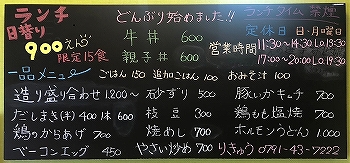 ランチ
日替り
900えん
限定15食
どんぶり始めました!!
牛丼 600
親子丼 600
ランチタイム 禁煙
定休日 日・月曜日
営業時間 11:30〜14:30 L.o 13:30
17:00〜20:00 L.o 19:30
一品メニュー ごはん 150 追加ごはん 100 おみそ汁 100
造り盛り合わせ 1,200〜 石ずり 500 豚いかキムチ 700
だしまき(半)400 1本 600 枝豆 300 鶏もも塩焼 700
鶏のからあげ 700 焼めし 700 ホルモンうどん 1,000
ベーコンエッグ 450 やさい炒め 700 りきゅう 0791-43-7222